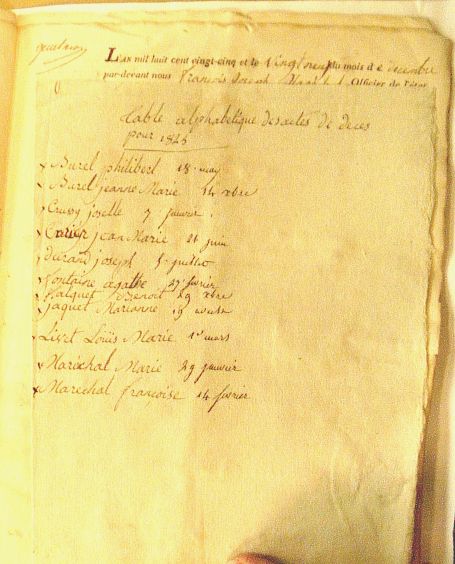 L'AN mil huit cent vingt-cinq et le vingt du mois de decembre
par-devant nous François Joseph Officier de l'état
Table alphabetique des actes de deces
pour 1825
Burel philibert 18 may
Burel jeanne Marie 14 xbre
Crussy josette 7 janvier.
jean Marie 21 juin
Durand joseph 1 juillet
Fontaine agathe 27 fevrier
Benoit 29 xbre
Jaquet Marianne 19
Lizet Loüis Marie 1er mars
Marechal Marie 29 janvier
Marechal francoise 14 fevrier